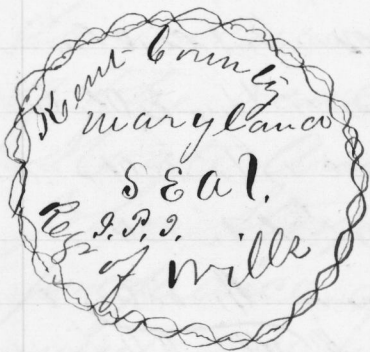 Kent County
Maryland
SEal.
J. P. J.
Regr of Wills